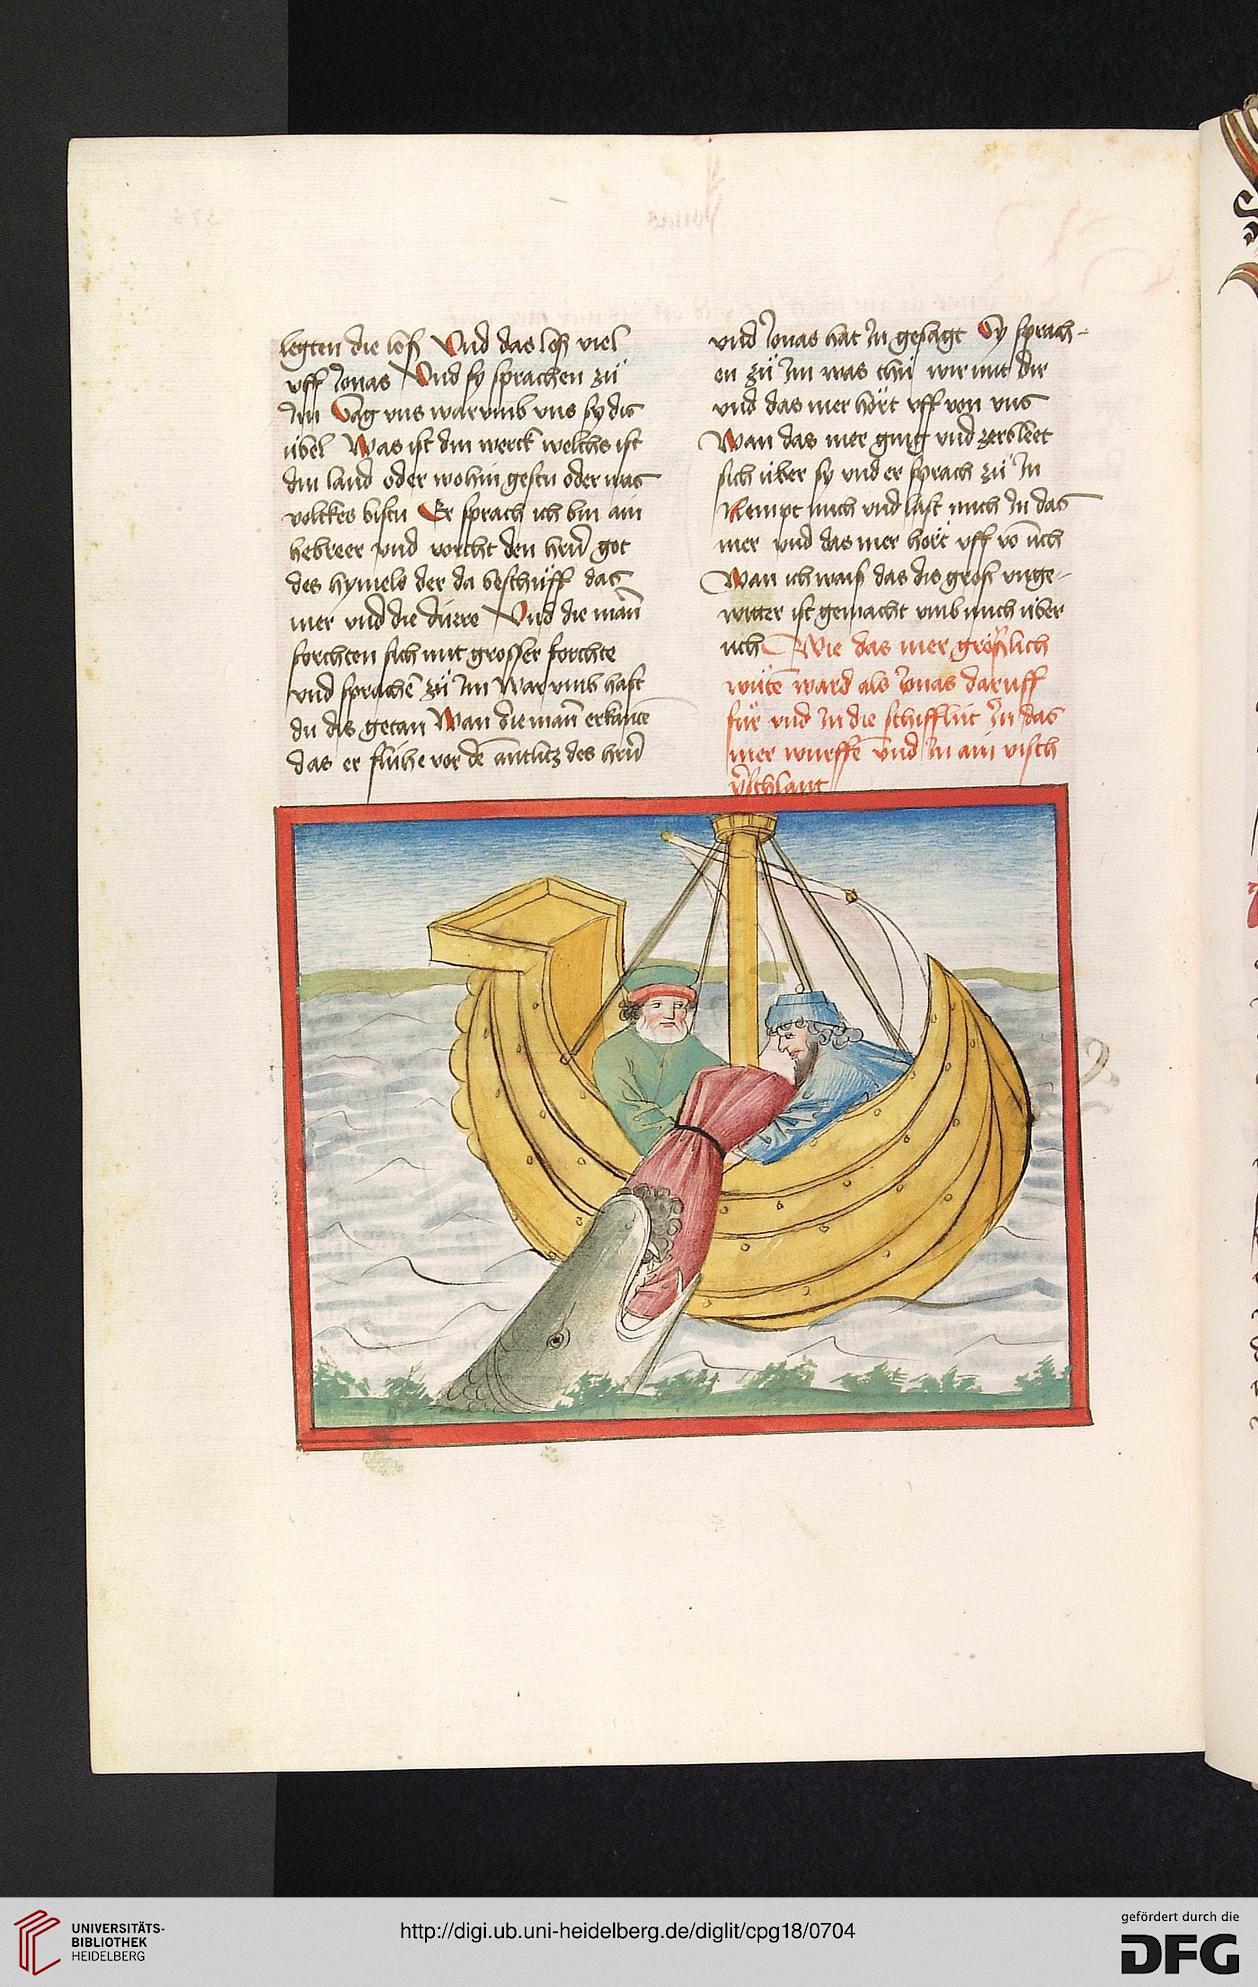 legten die loß Und das loß viel
uff Jonas Und sy sprachen zü
Jm Sag vns warumb vns sy dis
übel Was ist din werck welchs ist
din land oder wohin gestu oder was
volckes bistu Er sprach ich bin ain
hebreer vnd vorcht den hrn̄ got
des hymels der da beschüff das
mer vnd die dürre Und die man̄
forchten sich mit grosser forchte
vnd sprachē zü Jm Warumb hast
du dis getan Wan die man̄ erkante
das er flühe vor dē antlitz des hrn̄
vnd Jonas hat Jn gesagt Sy sprach-
en zü Jm was thü wir mit dir
vnd das mer hört uff von vns
Wan das mer ging vnd zerbleet
sich über sy vnd er sprach zü Jn
Nempt mich vnd last mich Jn das
mer vnd das mer hört uff vō üch
Wan ich wais das dis groß unge-
witter ist gemacht vmb mich über
üch Wie das mer größlich
wütē ward als Jonas daruff
für vnd Jn die schifflüt Jn das
mer wurffē vnd Jn ain visch
v̄schlant
UNIVERSITÄTS-
BIBLIOTHEK
HEIDELBERG
http://digi.ub.uni-heidelberg.de/diglit/cpg18/0704
gefördert durch die
DFG